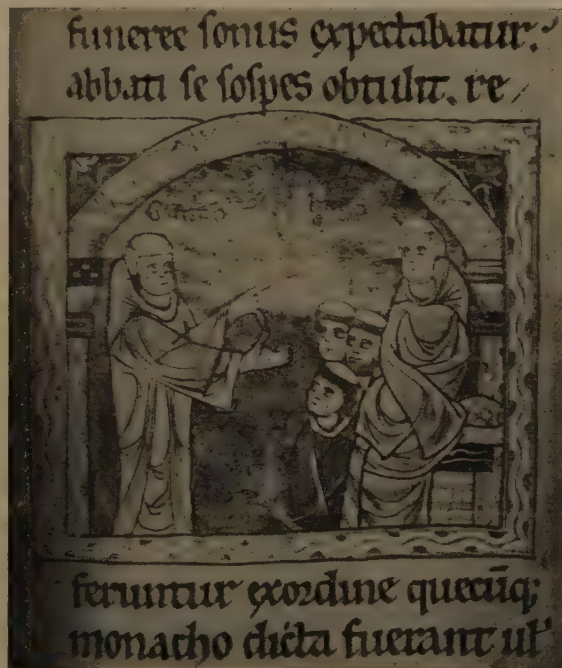 funeree sonus expectabatur.
abbati se sospes obtulit. re
feruntur exordine quecūq;
monacho dicta fuerant ul'